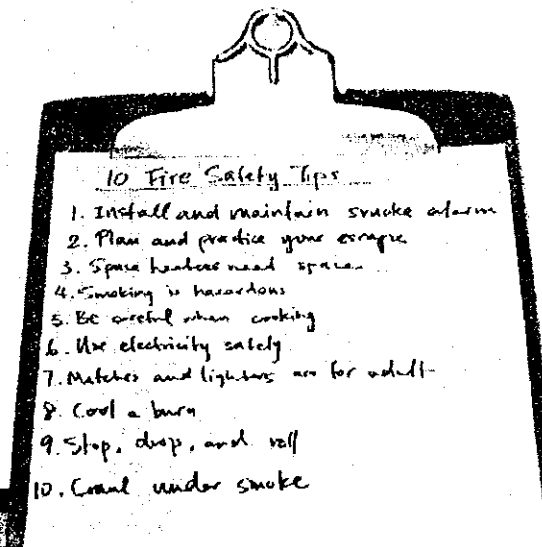 10 Fire Safety Tips
1. Install and maintain smoke alarm
2. Plan and practice your escape
3. Space heaters need space
4. Smoking is hazardous
5. Be careful when cooking
6. Use electricity safely
7. Matches and lighters are for adult
8. Cool a burn
9. Stop, drop, and roll
10. Crawl under smoke